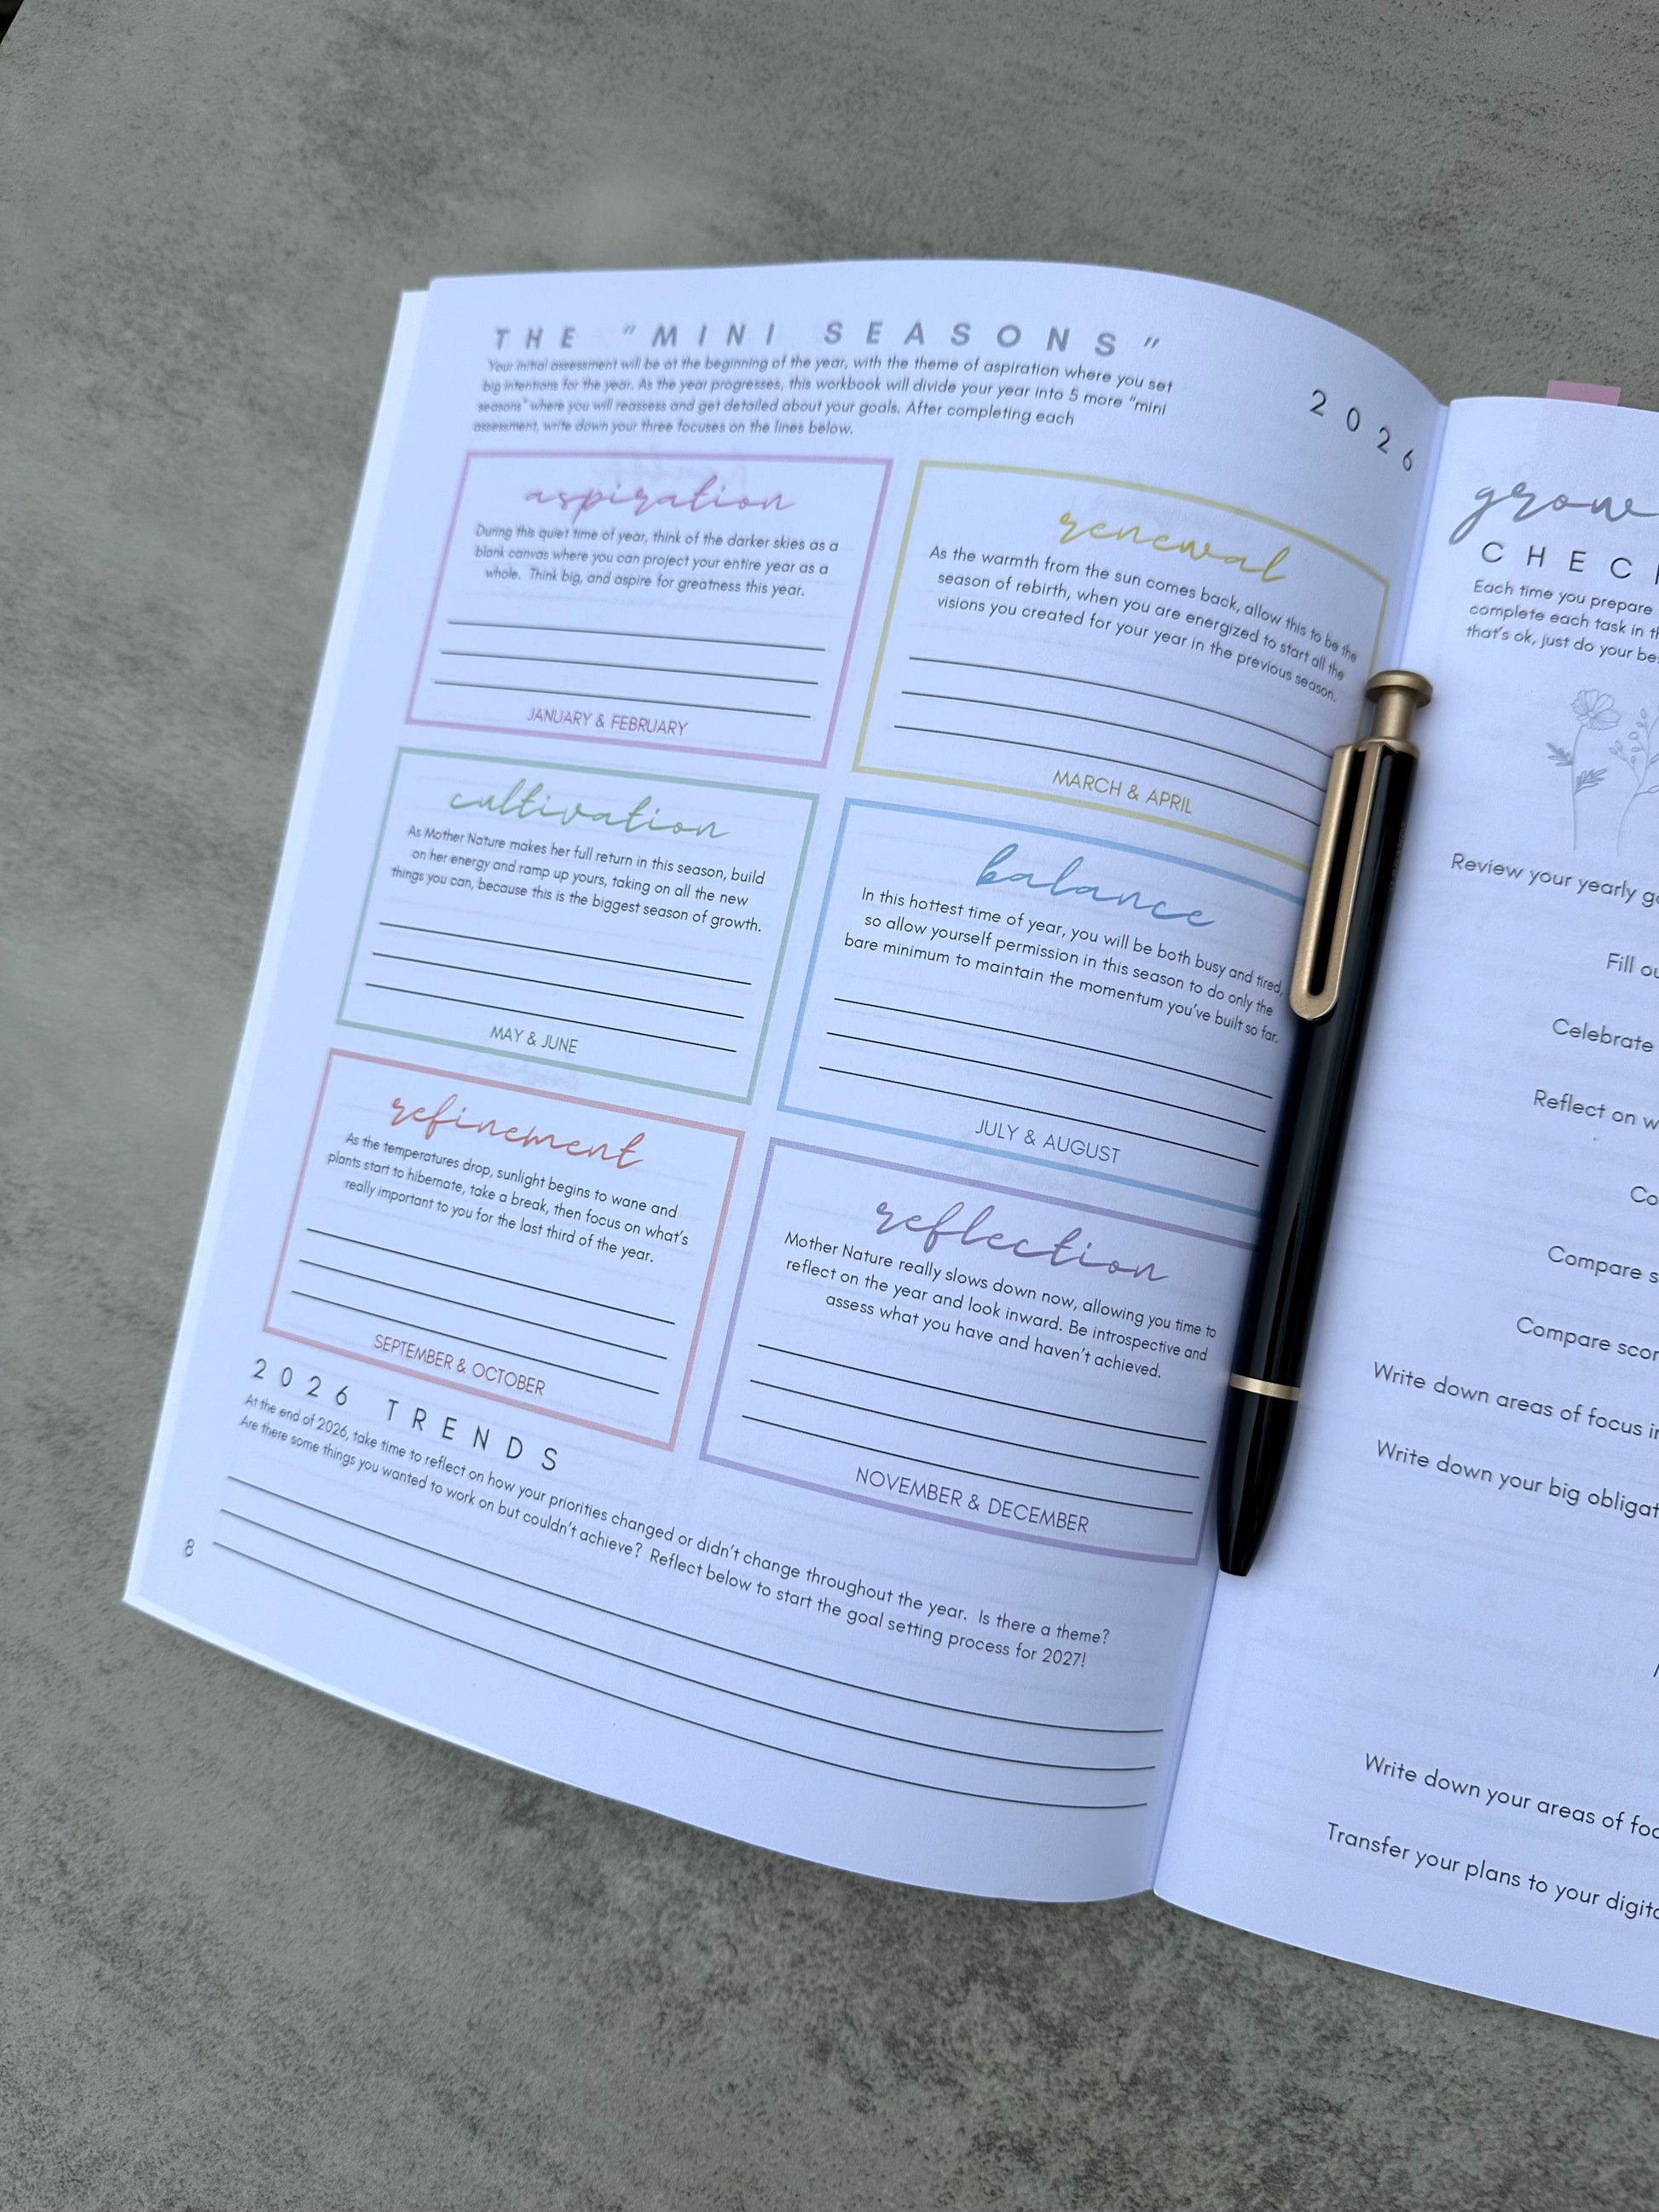 THE "MINI SEASONS"
Your initial assessment will be at the beginning of the year, with the theme of aspiration where you set
big intentions for the year. As the year progresses, this workbook will divide your year into 5 more "mini
seasons" where you will reassess and get detailed about your goals. After completing each
assessment, write down your three focuses on the lines below.
2026
aspiration
During this quiet time of year, think of the darker skies as a
blank canvas where you can project your entire year as a
whole. Think big, and aspire for greatness this year.
JANUARY & FEBRUARY
renewal
As the warmth from the sun comes back, allow this to be the
season of rebirth, when you are energized to start all the
visions you created for your year in the previous season.
MARCH & APRIL
cultivation
As Mother Nature makes her full return in this season, build
on her energy and ramp up yours, taking on all the new
things you can, because this is the biggest season of growth.
MAY & JUNE
balance
In this hottest time of year, you will be both busy and tired,
so allow yourself permission in this season to do only the
bare minimum to maintain the momentum you've built so far.
JULY & AUGUST
refinement
As the temperatures drop, sunlight begins to wane and
plants start to hibernate, take a break, then focus on what's
really important to you for the last third of the year.
SEPTEMBER & OCTOBER
reflection
Mother Nature really slows down now, allowing you time to
reflect on the year and look inward. Be introspective and
assess what you have and haven't achieved.
NOVEMBER & DECEMBER
2026 TRENDS
At the end of 2026, take time to reflect on how your priorities changed or didn't change throughout the year. Is there a theme?
Are there some things you wanted to work on but couldn't achieve? Reflect below to start the goal setting process for 2027!
8
grow
CHEC
Each time you prepare
complete each task in
that's ok, just do your
Review your yearly
Fill
Celebrate
Reflect on
Co
Compare
Compare
Write down areas of focus
Write down your big
Write down your areas of
Transfer your plans to your